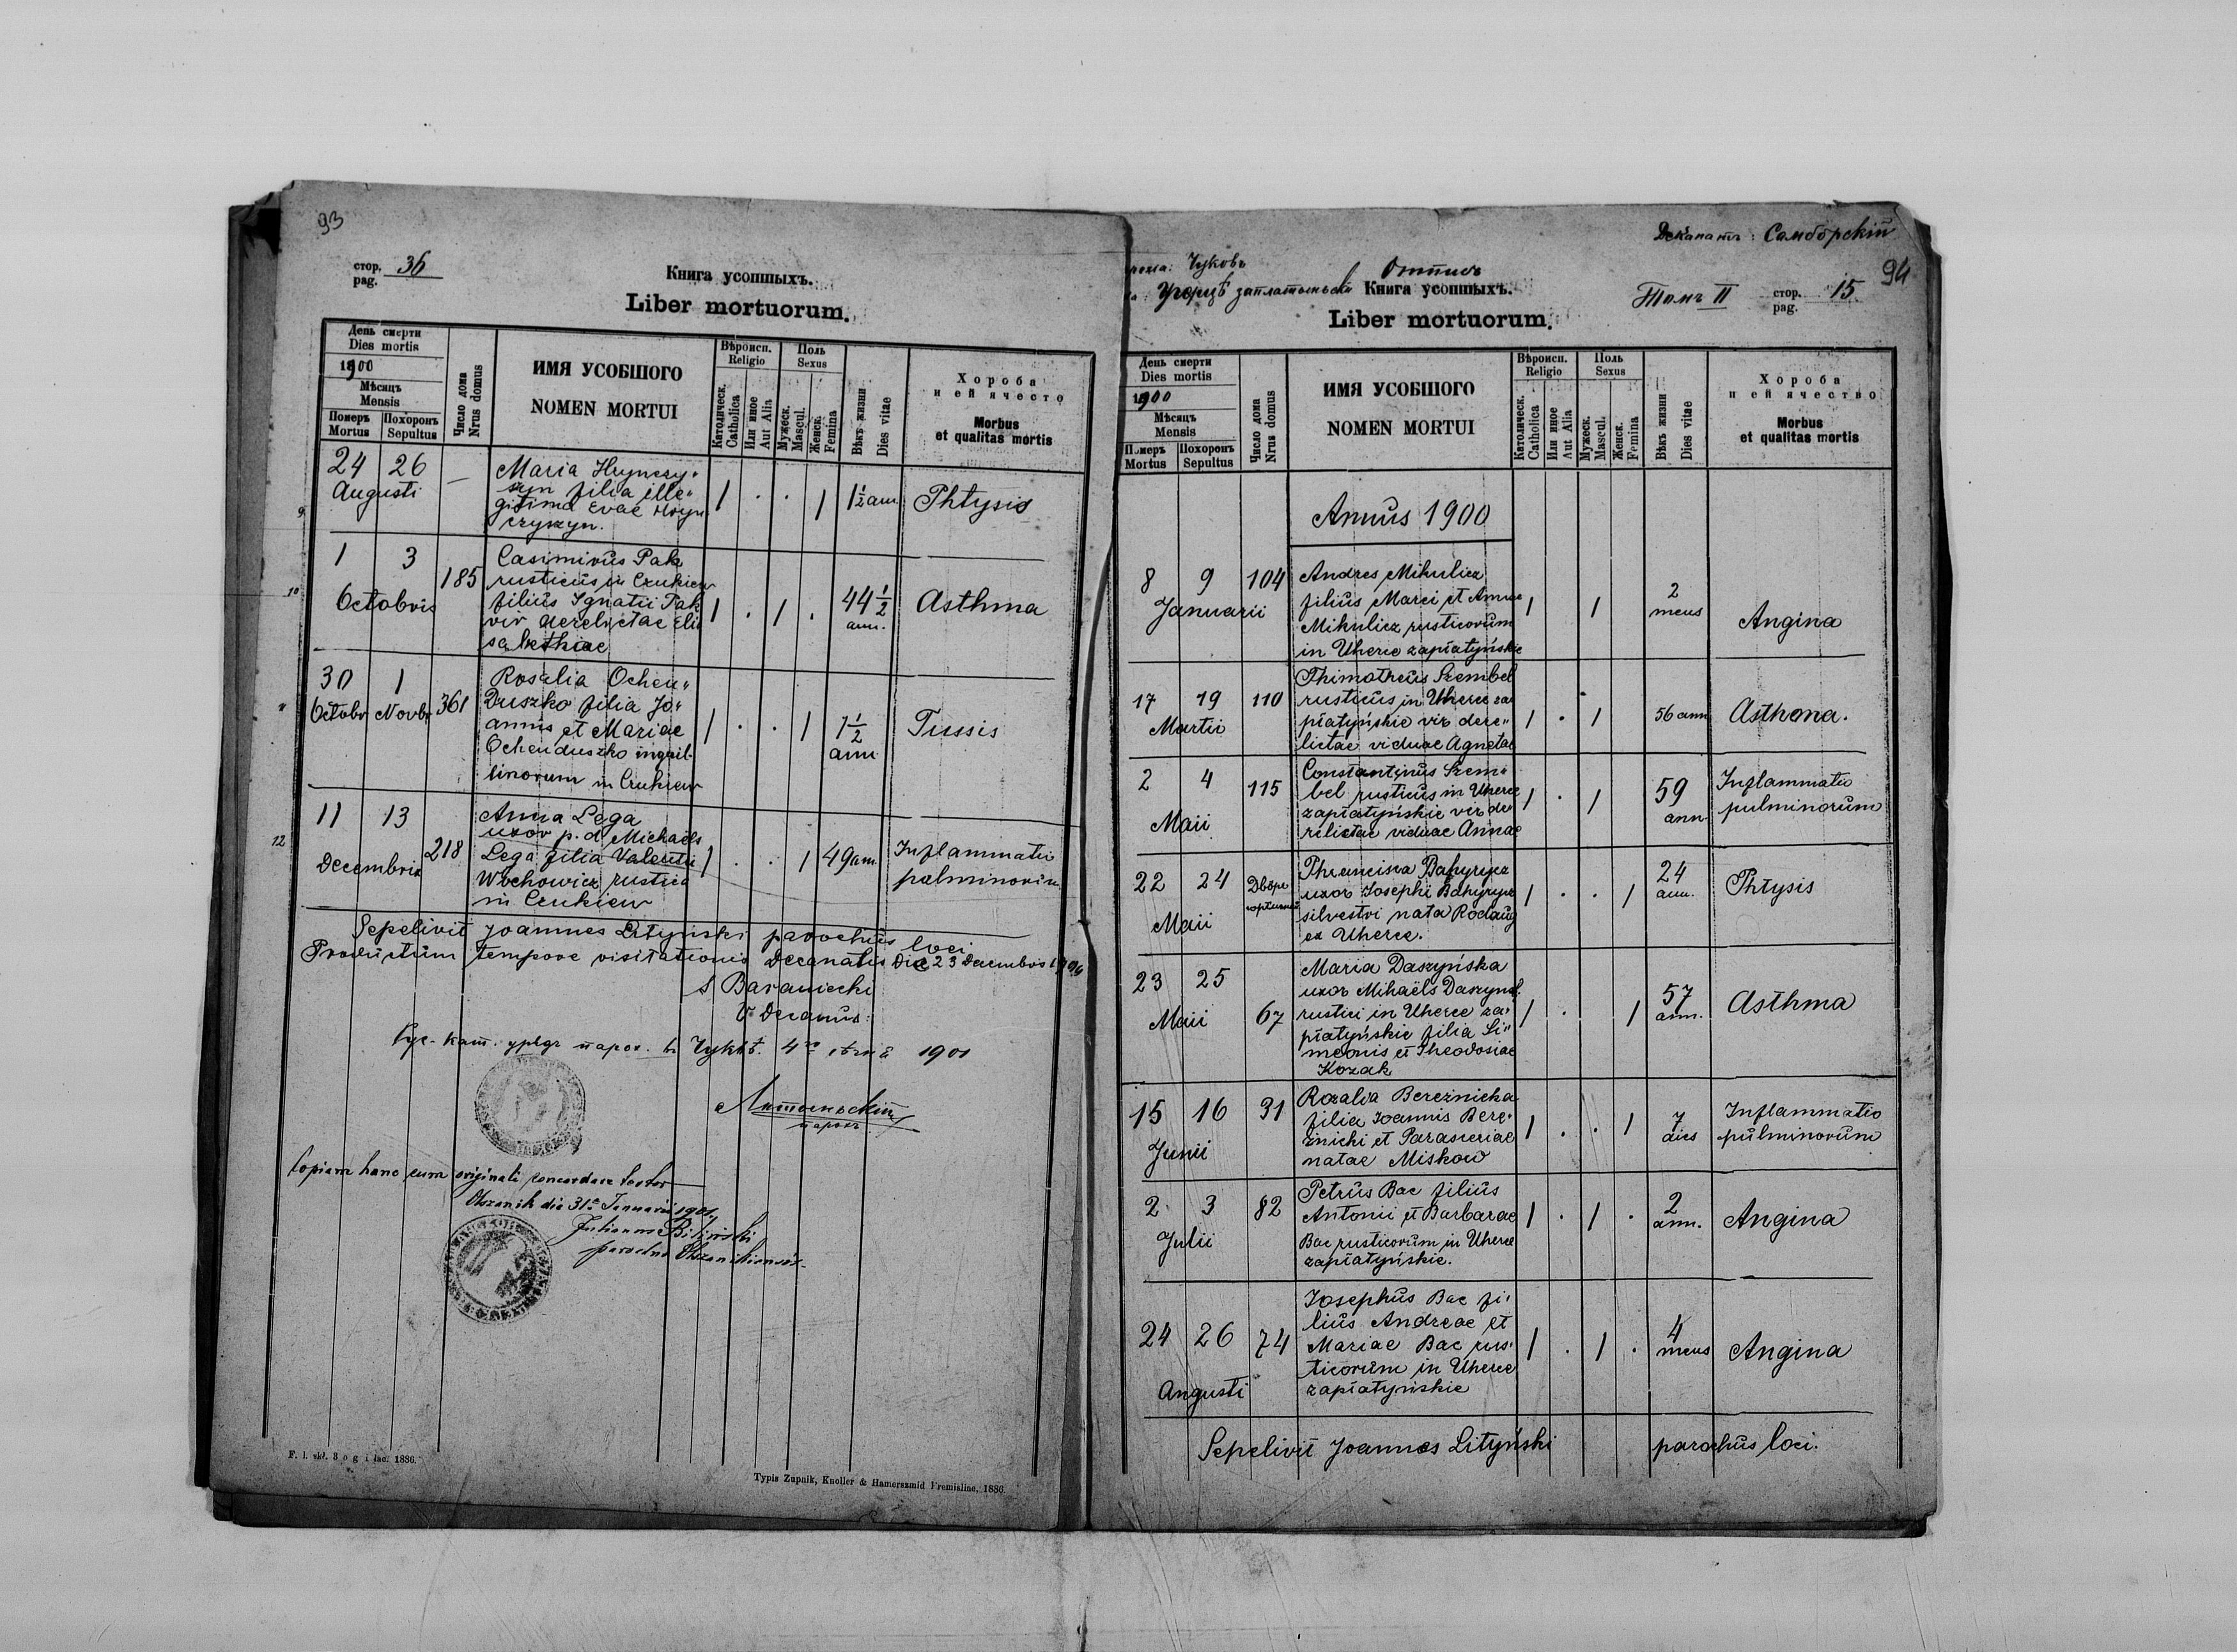 93
стор. 36
pag.
Книга усопшыхъ.
Liber mortuorum.
День смерти
Dies mortis
1900
Мѣсяцъ
Mensis
Померъ Похоронъ
Mortus Sepultus
Число дома
Nrus domus
ИМЯ УСОБШОГО
NOMEN MORTUI
Вѣроисп.
Religio
Католическ.
Catholica
Или иное
Aut Alia
Поль
Sexus
Мужеск.
Mascul.
Женск.
Femina
Вѣкъ жизни
Dies vitae
Хороба
и ей ячесто
Morbus
et qualitas mortis
9
24 26
Augusti
—
Maria Hrynczy„
szyn filia ille„
gitima Evae Hryn
czyszyn.
1 . . 1
1½ ann
Phtysis
10
1 3
Octobris
185
Casimirus Pak
rusticus in Czukiew
filius Ignatii Pak
vir derelictae Eli
sabethiae
1 . 1 .
44½
ann.
Asthma
11
30 1
Octobr Novbr
361
Rosalia Ochen„
duszko filia Jo„
annis et Mariae
Ochenduszko inquil„
linorum in Czukiew
1 . . 1
1½
ann
Tussis
12
11 13
Decembris
218
Anna Lega
uxor p. d. Michaels
Lega filia Valentii
Wochowicz rustica
in Czukiew
1 . . 1
49 ann
Inflammatio
pulminorum
Sepelivit Joannes Lityński parochus loci
Productum tempore visitationis decanalis die 23 Decembris 1900
S Baraniecki
V. Decanus.
1901
Литыньскій
парохъ
Copiam hanc cum originali concordare testor
die 31ª Januarii 1901
Julianus Biliński
parochus
F. l. skł. 3 o g i lac. 1886.
Typis Zupnik, Knoller & Hamerszmid Premisliae, 1886.
Деканатъ: Самборскій
94
Чуковъ
Отпись
Угорцѣ заплатыньскіи
Книга усопшыхъ.
Томъ II
стор. 15
pag.
Liber mortuorum.
День смерти
Dies mortis
1900
Мѣсяцъ
Mensis
Померъ Похоронъ
Mortus Sepultus
Число дома
Nrus domus
ИМЯ УСОБШОГО
NOMEN MORTUI
Вѣроисп.
Religio
Католическ.
Catholica
Или иное
Aut Alia
Поль
Sexus
Мужеск.
Mascul.
Женск.
Femina
Вѣкъ жизни
Dies vitae
Хороба
и ей ячество
Morbus
et qualitas mortis
Annus 1900
8 9
Januarii
104
Andres Mikulicz
filius Marci et Annae
Mikulicz rusticorum
in Uherce zapłatyńskie
1 1
2
mens
Angina
17 19
Martii
110
Thimotheus Szembel
rusticus in Uherce za
płatyńskie vir dere„
lictae viduae Agnetae
1 . 1
56 ann
Asthma.
2 4
Maii
115
Constantinus Szem„
bel rusticus in Uherce
zapłatyńskie vir de
rilictae viduae Annae
1 . 1
59
ann
Inflammatio
pulminorum
22 24
Maii
Двôръ
Phrancisca Bahyrycz
uxor Josephi Bahyrycz
silvestri nata
ex Uherce.
1 . . 1
24
ann.
Phtysis
23 25
Maii
67
Maria Daszyńska
uxor Mihaëls Daszyńs.
rustici in Uherce za„
płatyńskie filia Si„
meonis et Theodosiae
Kozak
1 . 1
57
ann.
Asthma
15 16
Junii
31
Rozalia Bereznicka
filia Joannis Bere„
znicki et Parasceviae
natae Miskow
1 . . 1
7
dies
Inflammatio
pulminorum
2 3
Julii
82
Petrus Bac filius
Antonii et Barbarae
Bac rusticorum in Uherce
zapłatyńskie.
1 . 1 .
2
ann.
Angina
24 26
Augusti
74
Josephus Bac fi„
lius Andreae et
Mariae Bac rus„
ticorum in Uherce
zapłatyńskie
1 . 1 .
4
mens
Angina
Sepelivit Joannes Lityński parochus loci.